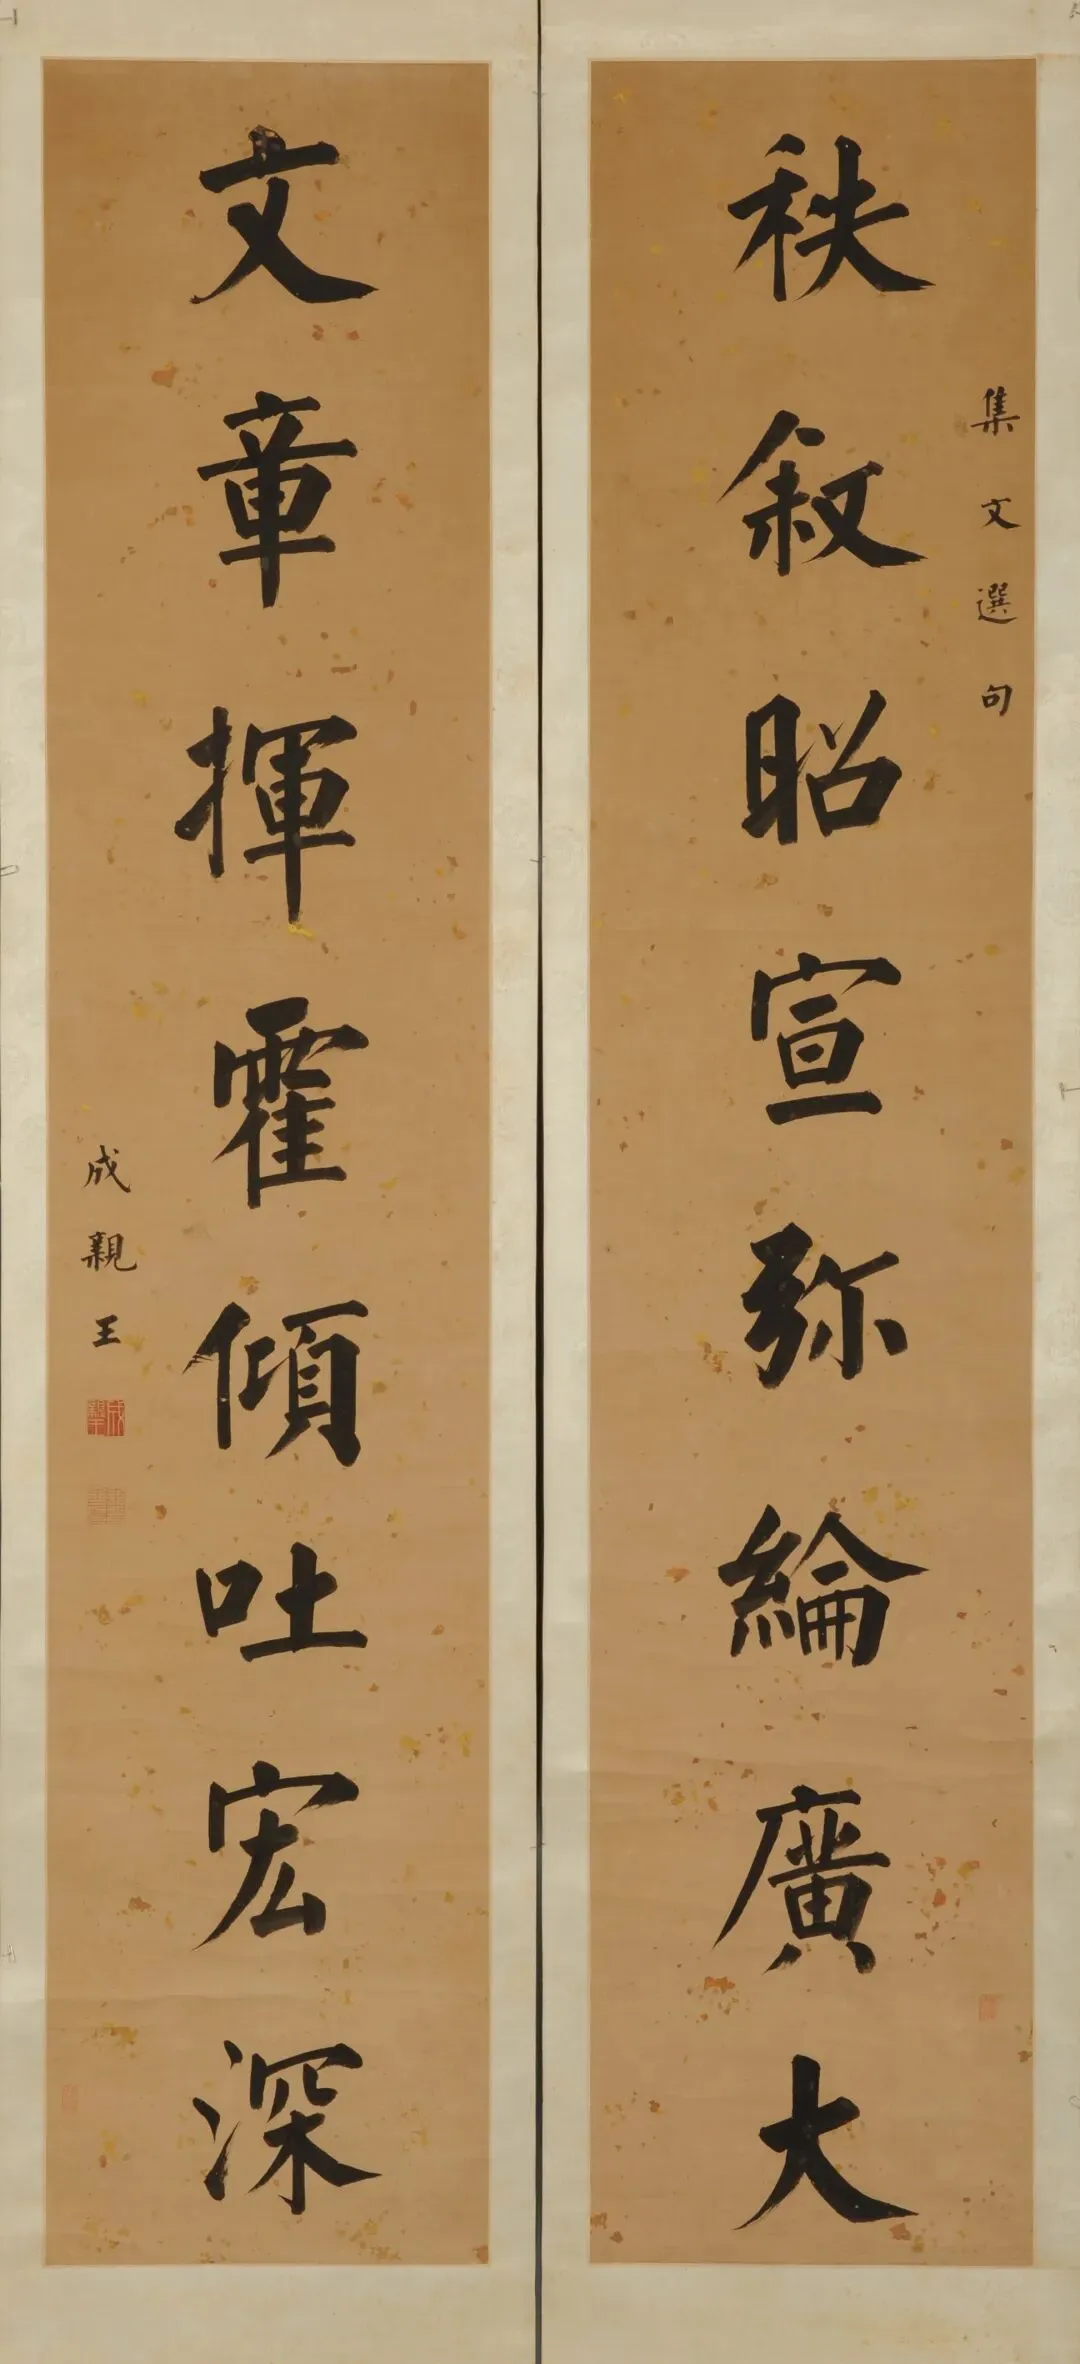 集文選句
袟叙昭宣弥綸廣大
文章揮霍傾吐宏深
成親王
成親王